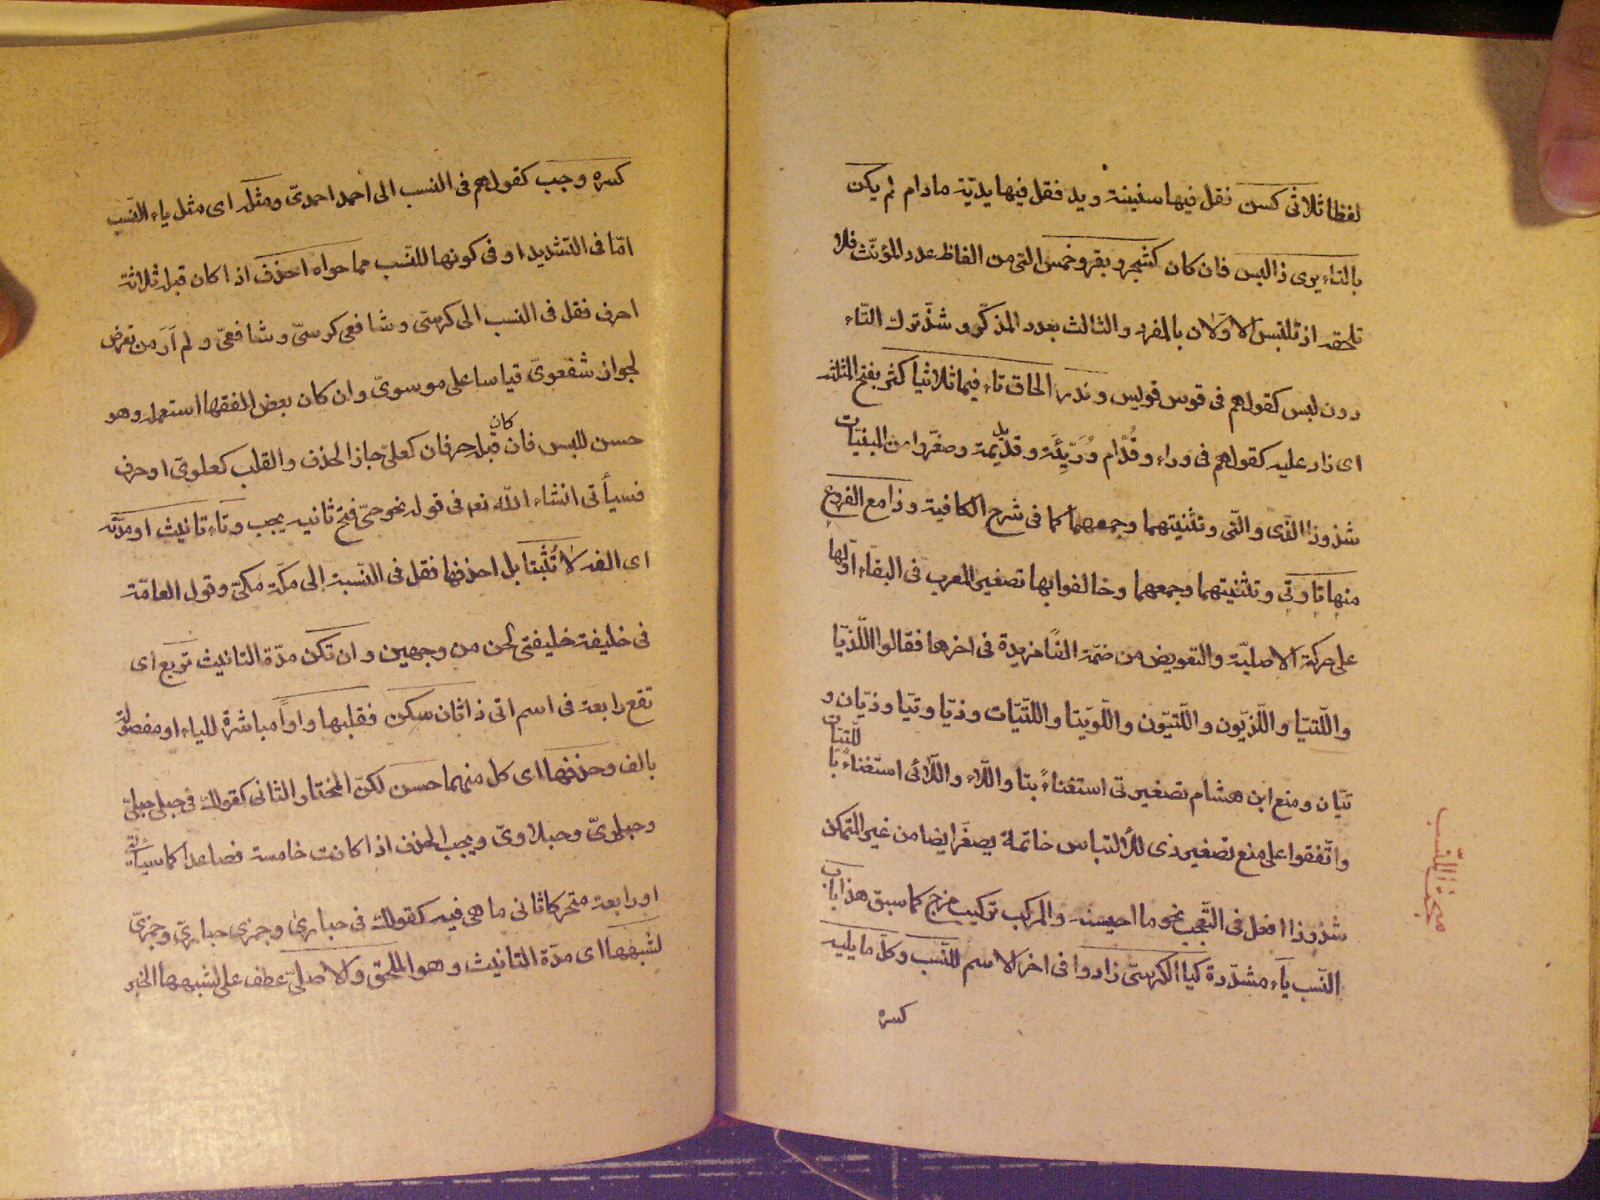 لفظا ثلاثى كسن فقل فيها سنينة ويد فقل فيها يديّة مادام لم يكن
بالتاء يرى ذا لبس فان كان كشجر و بقر وخمس التى من الفاظ عدد المؤنّث فلا
تلحقه اذ تلتبس الاولان بالمفرد والثالث بعدد المذكّر و شذّ ترك التاء
دون لبس كقولهم فى قوس قويس و ندر الحاق تاء فيما ثلاثيا كثر بفتح المثلثه
اى زاد عليه كقولهم فى وراء وقُدّام وُرَيّئَة و قديديمة وصغّروا من المبنيّات
شذوذا الّذى والّتى وتثنيتهما وجمعهما كما فى شرح الكافية وذا مع الفروع
منها تا وتى وتثنيتهما وجمعهما وخالفوا بها تصغير المعرب فى ابقاء اوّلها
على حركته الاصليّة والتعويض من ضمّته الفًا مزيدة فى اخرها فقالوا اللّذيّا
واللّتيّا واللّذيّون واللّتيّون واللّويتا واللتيّات وذيّا وتيّا وذيّان و
تيّان ومنع ابن هشام تصغير تى استغناءً بتا واللّاء واللّائى استغناءً باللّتيّات
واتّفقوا على منع تصغير ذى للألتباس خاتمة يصغّر ايضا من غير المتمكن
شذوذا افعل فى التّعجب نحو ما احيسنه والمركب تركيب مزج كما سبق هذا باب
النّسب ياء مشدّدة كيا الكرسىّ زادوا فى اخر الاسم للنّسب وكلّ ما يليه
كسره
مبحث النّسب
كسره وجب كقولهم فى النسب الى احمد احمدىّ ومثله اى مثل ياء النّسب
امّا فى التشديد او فى كونها للنّسب مما حواه احذف اذا كان قبله ثلاثة
احرف فقل فى النسب الى كرسىّ و شافعى كرسىّ وشافعىّ و لم اَرَ من تعرض
لجواز شفعوىّ قياسا على موسوىّ وان كان بعض الفقها استعمله وهو
حسن للبس فان كان قبله حرفان كعلىّ جاز الحذف والقلب كعلوىّ او حرف
فسيأتى انشاء اللّه تعم فى قوله نحو حىّ فتح ثانيه يجب وتاء تانيث او مدّته
اى الفه لا تُثْبتا بل احذفها فقل فى النّسبة الى مكّة مكىّ وقول العامّة
فى خليفة خليفتى لحن من وجهين وان تكن مدّة التانيث تربع اى
تقع رابعة فى اسم اتى ذا ثان سكن فقلبها واوًا مباشرة للياء او مفصولة
بالف وحذفها اى كل منهما حسن لكن المختار الثانى كقولك فى حبلى حبلىّ
وحبلوىّ وحبلاوىّ ويجب الحذف اذا كانت خامسة فصاعدا كما سياتى
او رابعة متحركا ثانى ما هى فيه كقولك فى حبارى وجمزى حبارىّ وجمزىّ
لشبهها اى مدّة التانيث وهو الملحق والاصلىّ عطف على لشبهها الخبر